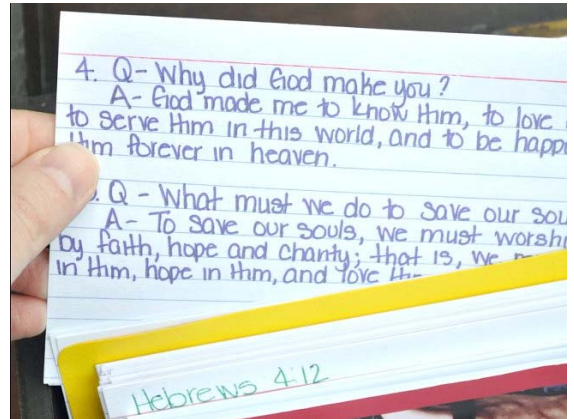 4. Q- Why did God make you?
A- God made me to know Him, to love
to serve Him in this world, and to be happ
Him forever in heaven.
. Q - What must we do to save our sou
A- To save our souls, we must worshi
by faith, hope and charity; that is, we
in Him, hope in Him, and love
Hebrews 4:12